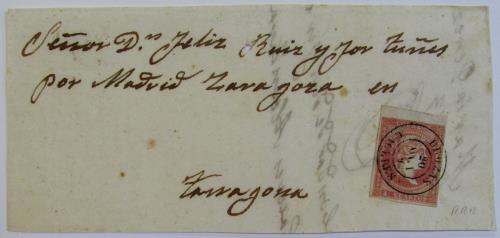 Señor D.ⁿ Feliz Ruiz y For tuñes
por Madrid Zaragoza en
Tarragona
4 CUARTOS
RRR